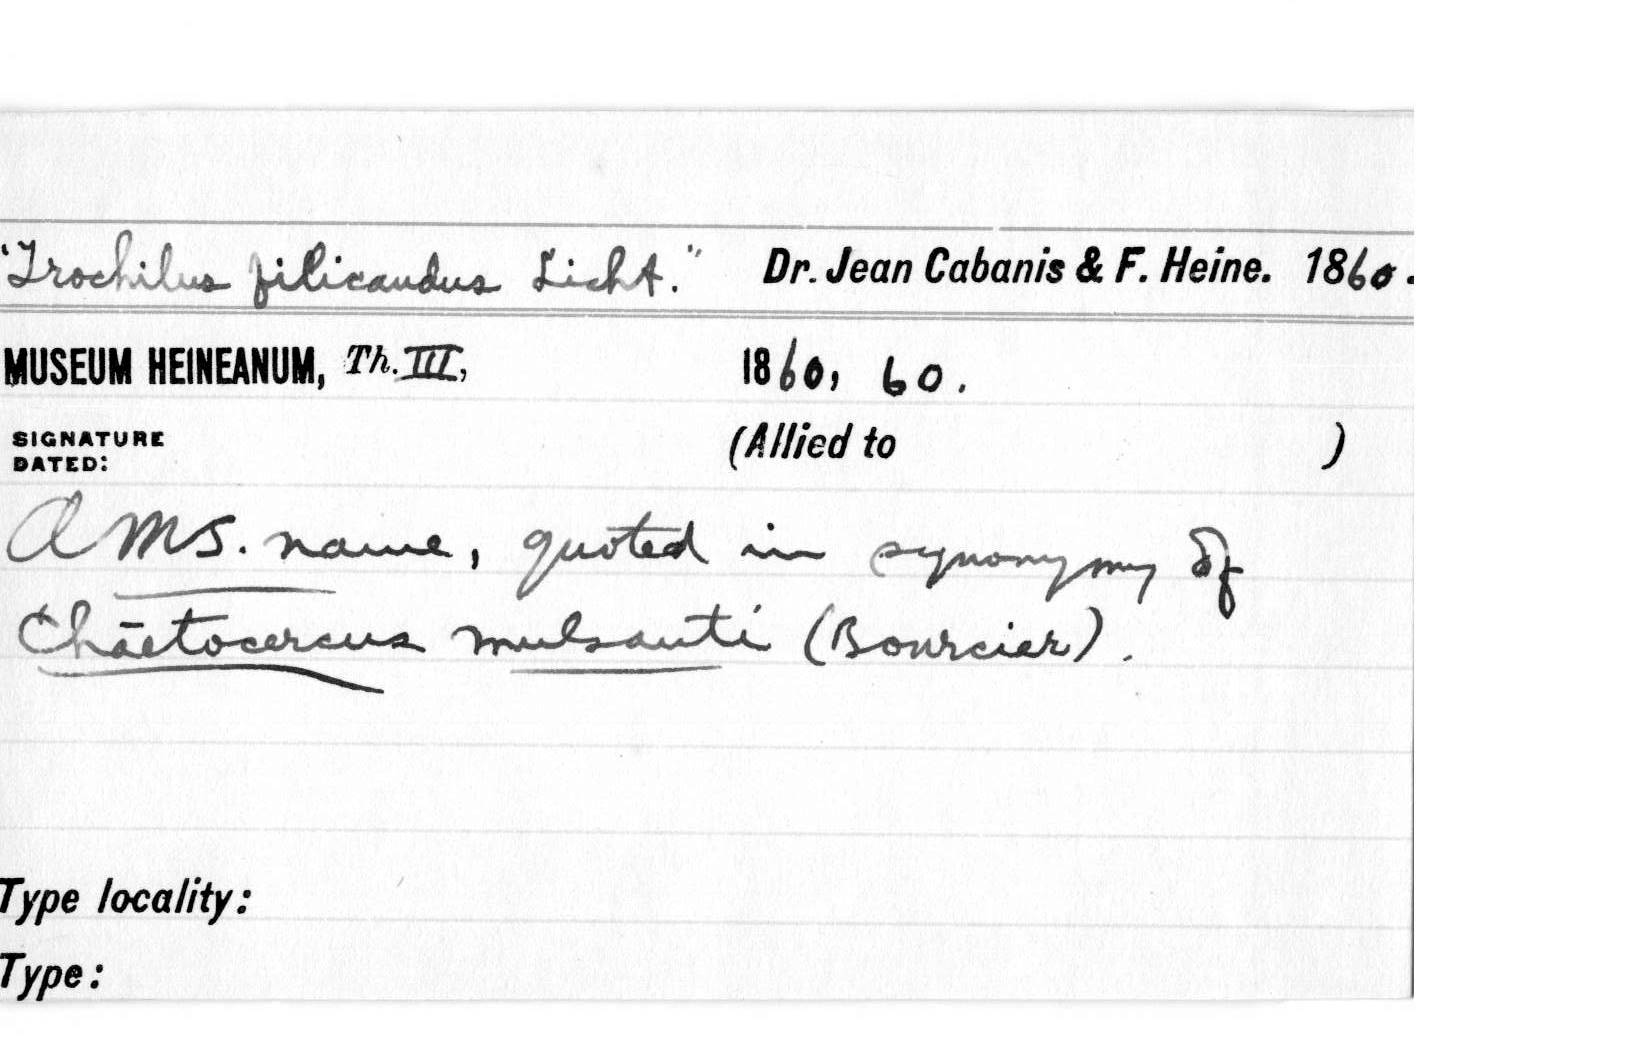 "Trochilus filicaudus Licht." Dr. Jean Cabanis & F. Heine. 1860.
MUSEUM HEINEANUM, Th. III, 1860, 60.
SIGNATURE (Allied to )
DATED:
A MS. name, quoted in synonymy of
Chaetocercus mulsanti (Bourcier).
Type locality:
Type: